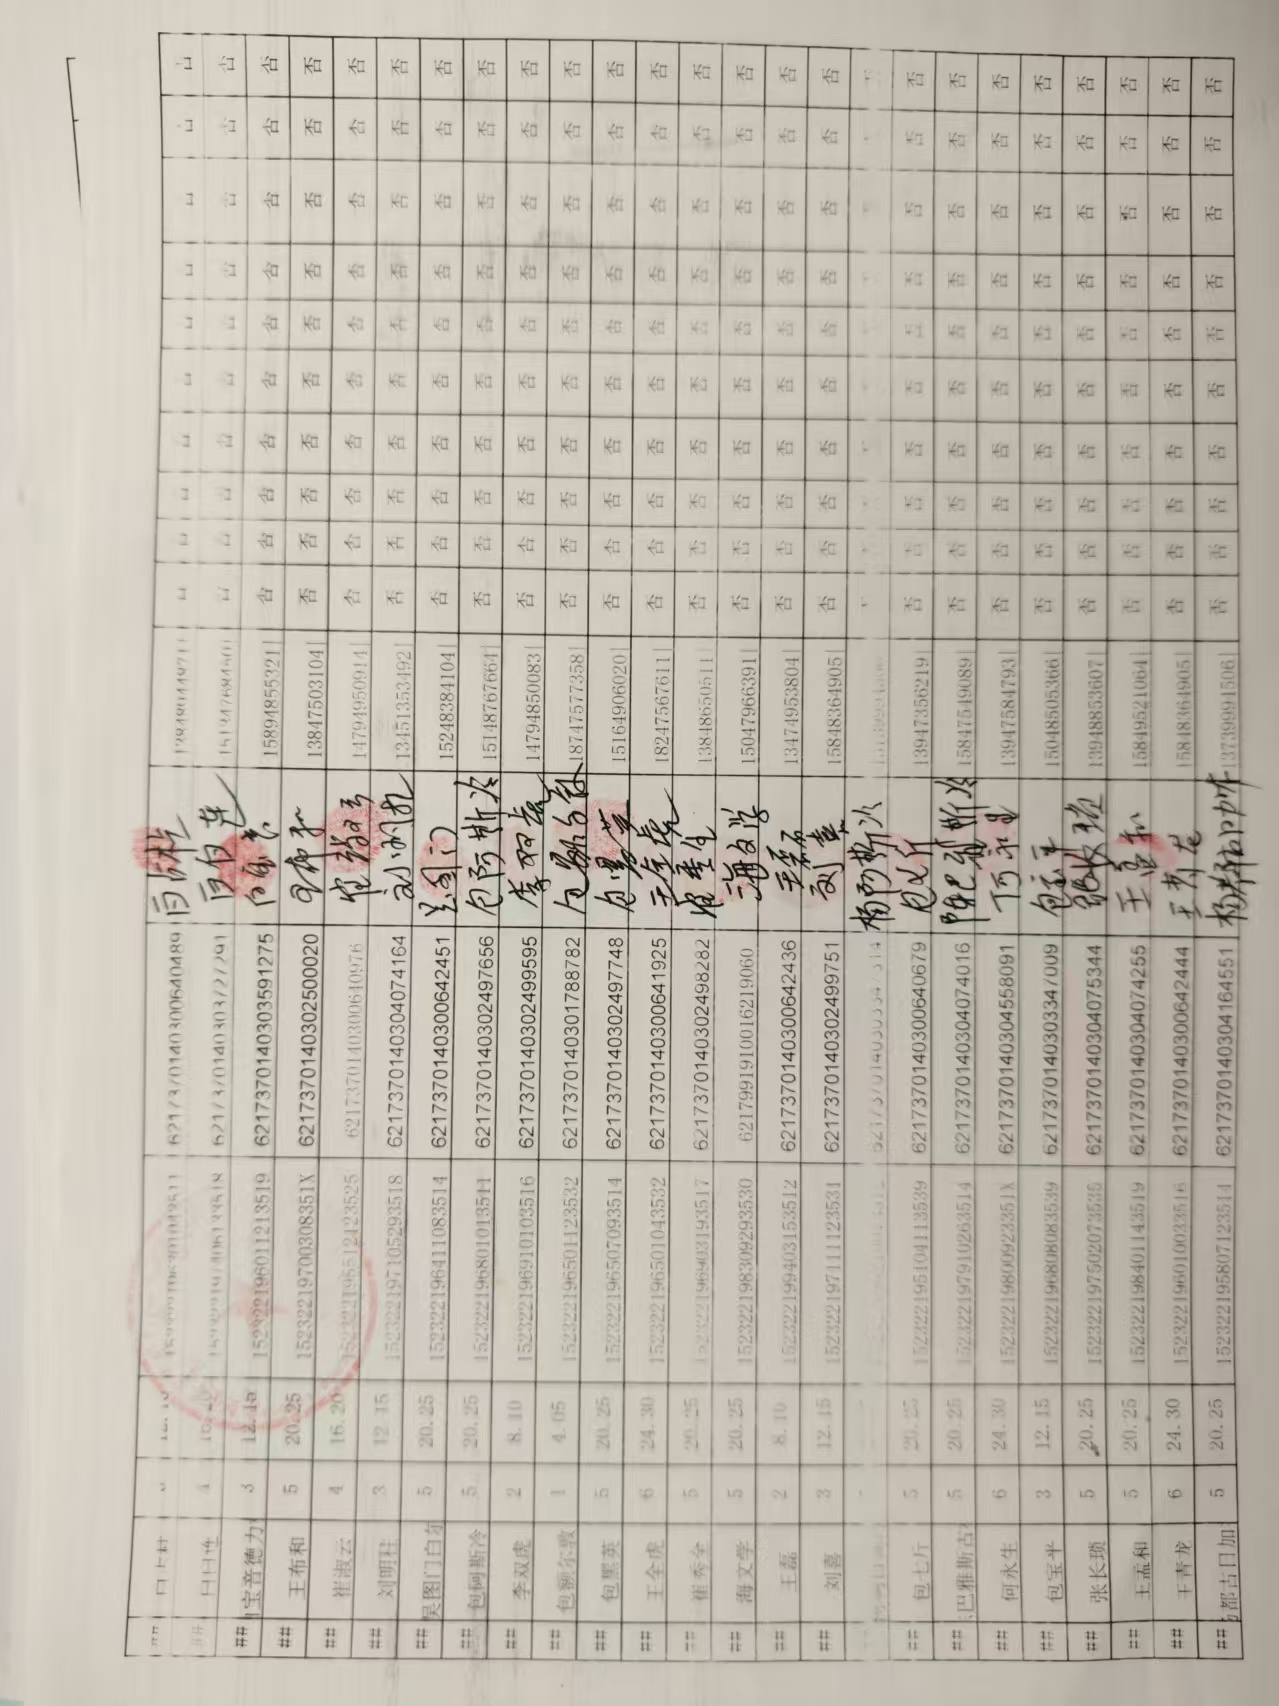 ## 4
## 宝音德力 3 12.15 152322196011213519 6217370140303591275 白宝音 15894855321 否 否 否 否 否 否 否 否 否 否
## 王布和 5 20.25 15232219700308351X 6217370140302500020 王布和 13847503104 否 否 否 否 否 否 否 否 否 否
## 崔淑云 4 16.20 152322196512123525 6217370140300640976 14794950914 否 否 否 否 否 否 否 否 否 否
## 刘明柱 3 12.15 152322197105293518 6217370140304074164 刘明礼 13451353492 否 否 否 否 否 否 否 否 否 否
## 吴图门白 5 20.25 152322196411083514 6217370140300642451 图门 15248384104 否 否 否 否 否 否 否 否 否 否
## 包阿斯冷 5 20.25 152322196801013511 6217370140302497656 包阿斯冷 15148767664 否 否 否 否 否 否 否 否 否 否
## 李双虎 2 8.10 152322196910103516 6217370140302499595 李双虎 14794850083 否 否 否 否 否 否 否 否 否 否
## 包额尔敦 1 4.05 152322196501123532 6217370140301788782 18747577358 否 否 否 否 否 否 否 否 否 否
## 包黑英 5 20.25 152322196507093514 6217370140302497748 包黑英 15164906020 否 否 否 否 否 否 否 否 否 否
## 王全虎 6 24.30 152322196501043532 6217370140300641925 王全虎 18247567611 否 否 否 否 否 否 否 否 否 否
## 崔秀全 5 20.25 152322196903193517 6217370140302498282 13848650511 否 否 否 否 否 否 否 否 否 否
## 海文学 5 20.25 152322198309293530 6217991910016219060 海文学 15047966391 否 否 否 否 否 否 否 否 否 否
## 王磊 2 8.10 152322199403153512 6217370140300642436 王磊 13474953804 否 否 否 否 否 否 否 否 否 否
## 刘喜 3 12.15 152322197111123531 6217370140302499751 刘喜 15848364905 否 否 否 否 否 否 否 否 否 否
杨阿斯次
## 包七斤 5 20.25 152322195104113539 6217370140300640679 包七斤 13947356219 否 否 否 否 否 否 否 否 否 否
## 巴雅斯古 5 20.25 152322197910263514 6217370140304074016 15847549089 否 否 否 否 否 否 否 否 否 否
## 何永生 6 24.30 15232219800923351X 6217370140304558091 何永生 13947584793 否 否 否 否 否 否 否 否 否 否
## 包宝平 3 12.15 152322196808083539 6217370140303347009 包宝平 15048505366 否 否 否 否 否 否 否 否 否 否
## 张长锁 5 20.25 152322197502073535 6217370140304075344 张长锁 13948853607 否 否 否 否 否 否 否 否 否 否
## 王孟和 5 20.25 152322198401143519 6217370140304074255 王孟和 15849521064 否 否 否 否 否 否 否 否 否 否
## 王青龙 6 24.30 152322196010033516 6217370140300642444 王青龙 15848364905 否 否 否 否 否 否 否 否 否 否
## 都古口加 5 20.25 152322195807123514 6217370140304164551 13739991506 否 否 否 否 否 否 否 否 否 否